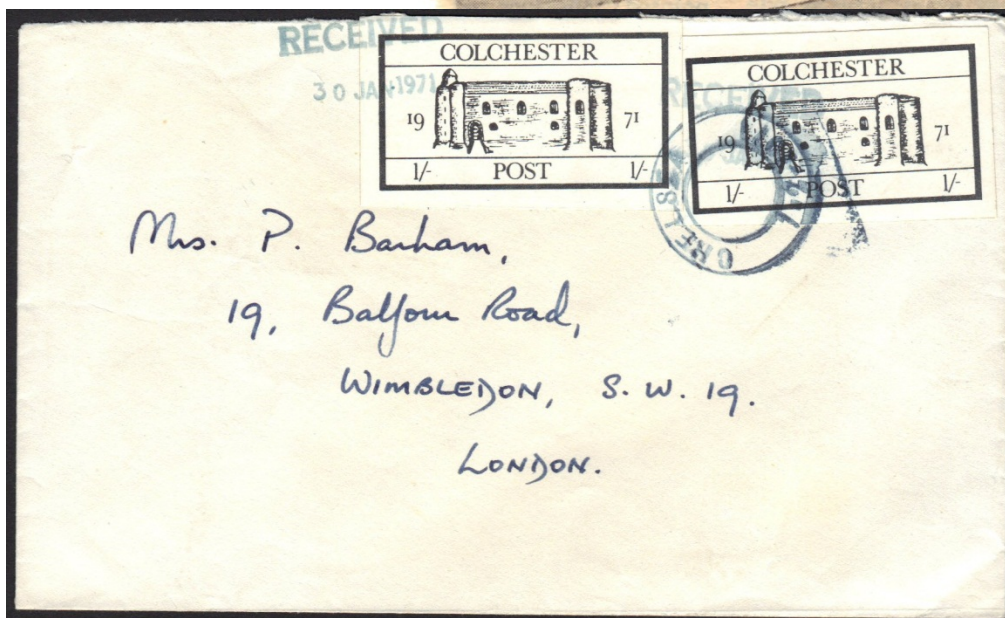 RECEIVED
30 JAN 1971
COLCHESTER
19 71
1/- POST 1/-
RECEIVED
COLCHESTER
19 71
1/- POST 1/-
Mrs. P. Barham,
19, Balfour Road,
WIMBLEDON, S. W. 19.
LONDON.